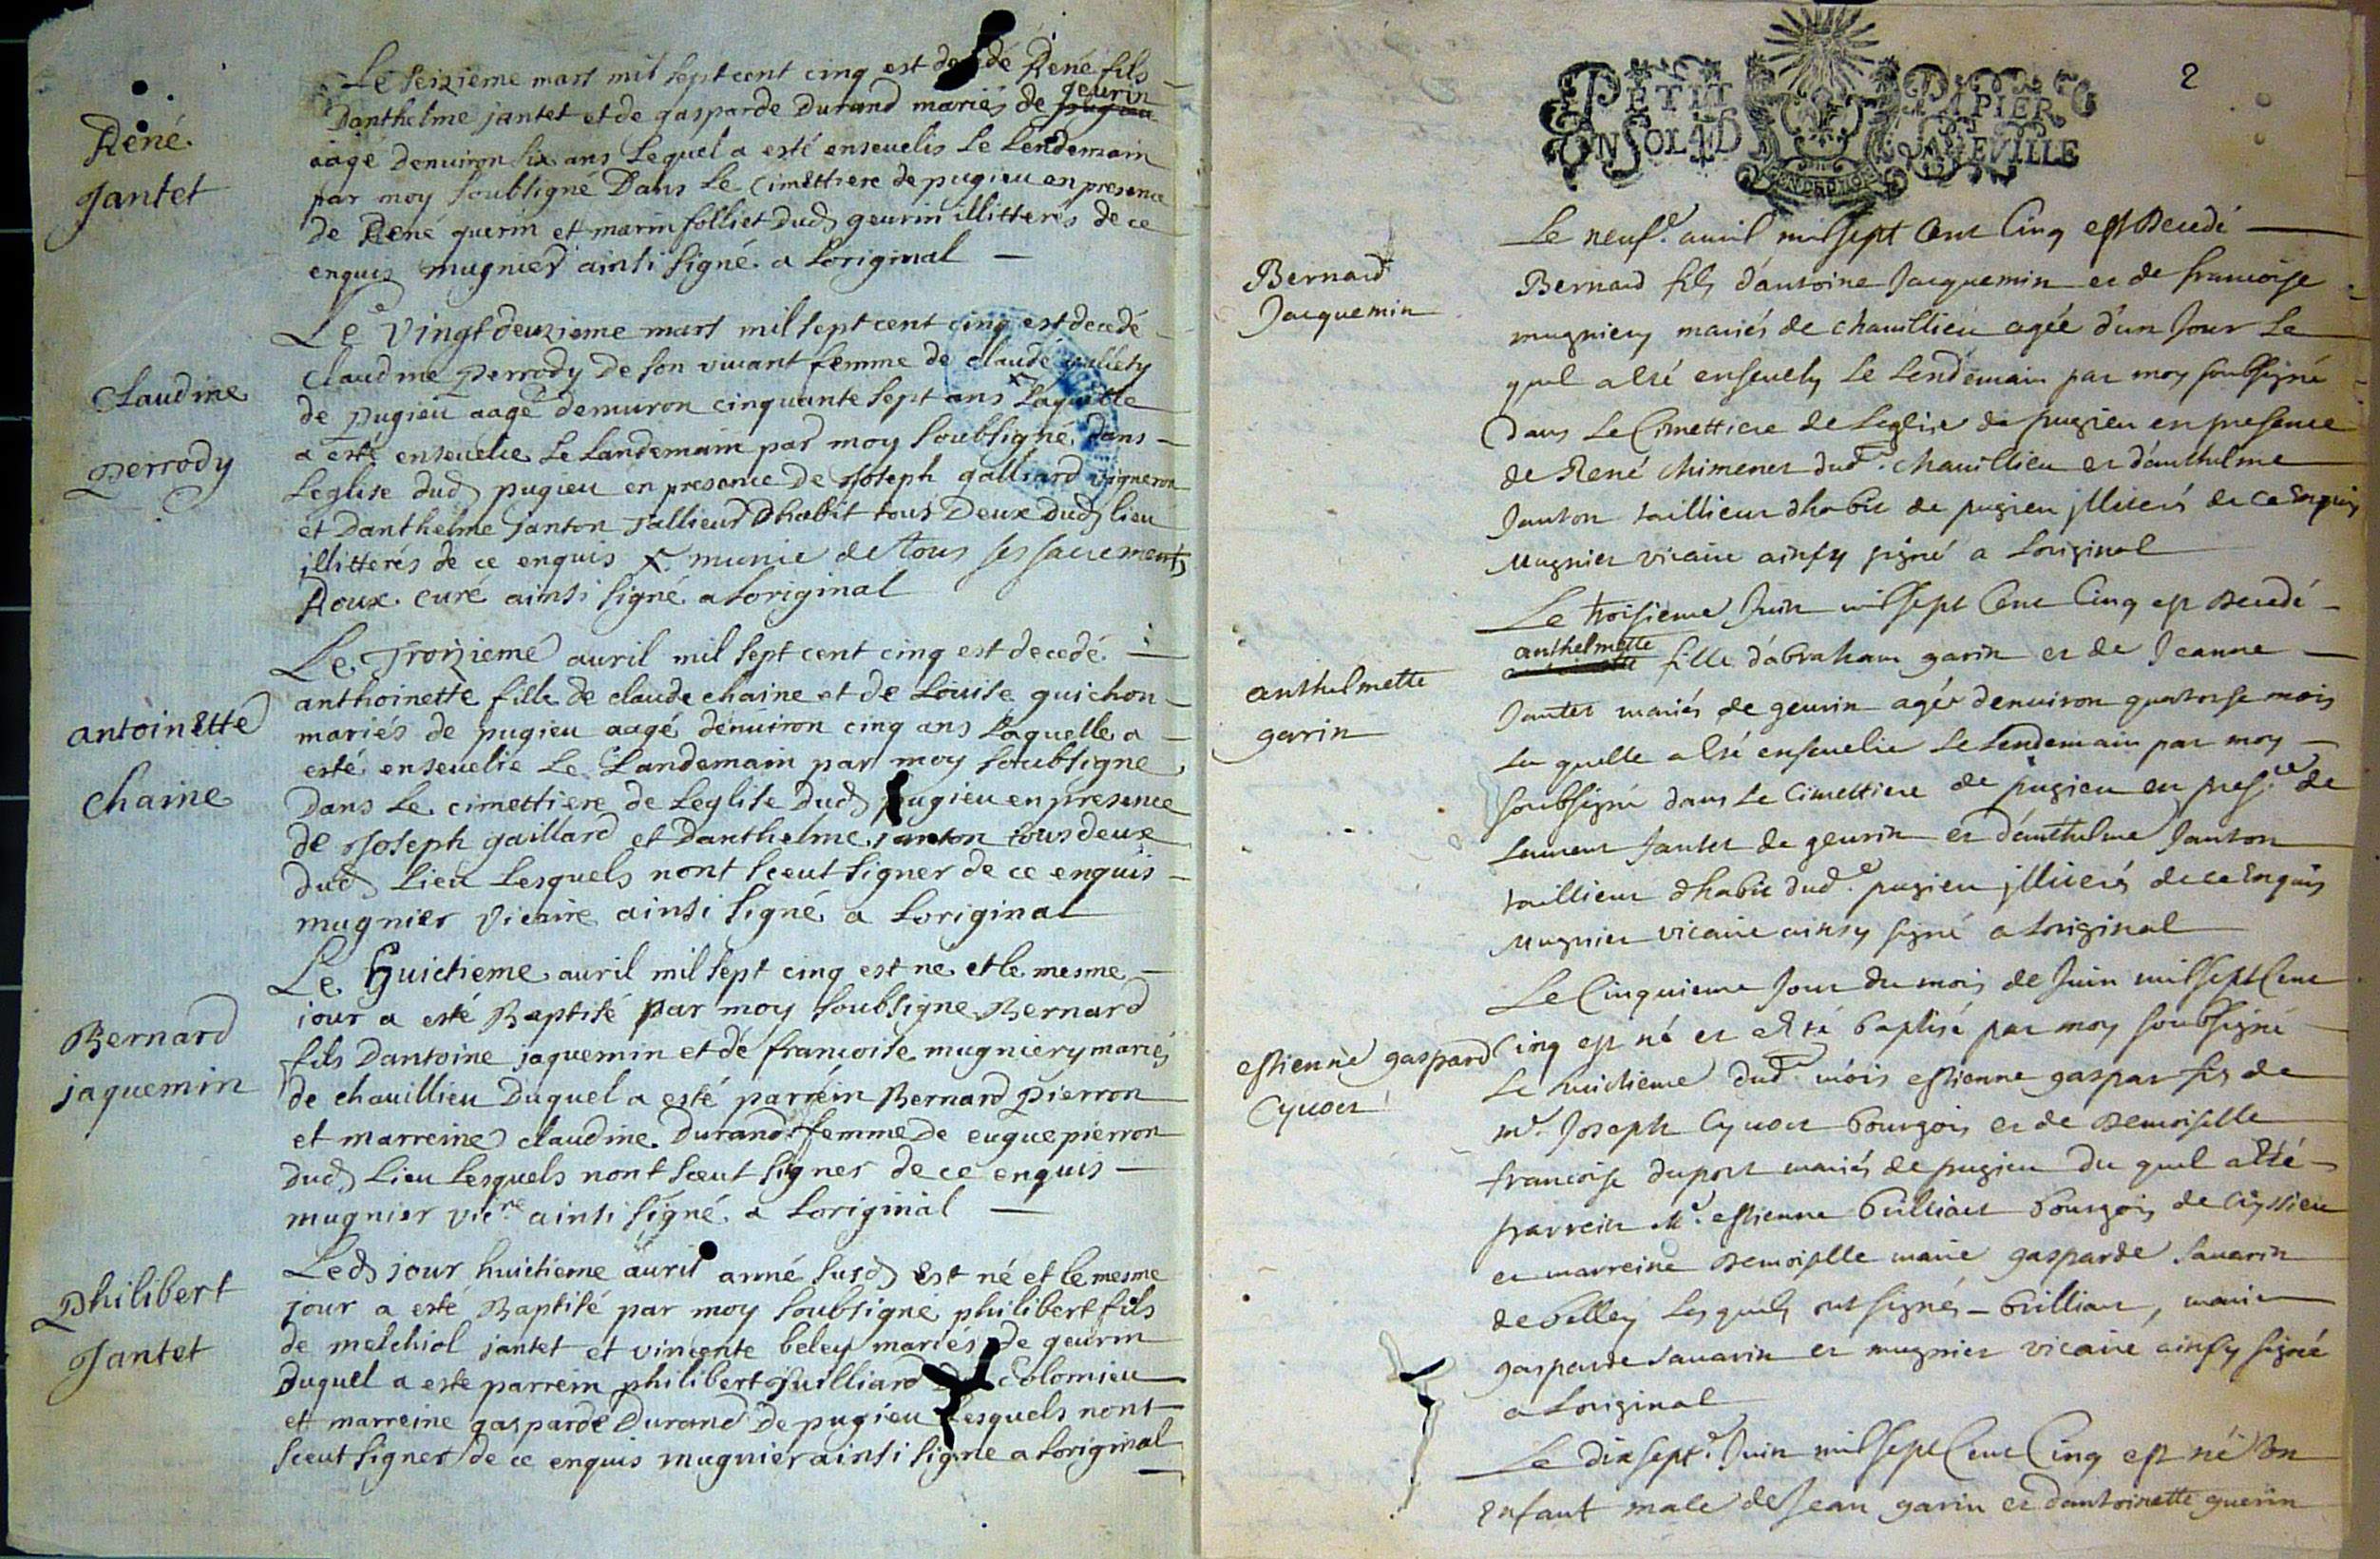 René
Jantet
Le seizieme mars mil sept cent cinq est decedé René fils
Danthelme jantet et de gasparde Durand mariés de geurin
aagé denuiron six ans Lequel a esté enseuelis Le Lendemain
par moy soubsigné Dans Le cimettiere de pugieu en presence
de René guerin et marin folliet dud geurin illitterés de ce
enquis mugnier ainsi signé a Loriginal
Claudine
Perrody
Le Vingt deuxieme mars mil sept cent cinq est decedé
Claudine Perrody De son viuant femme de claude
de pugieu aagé demuron cinquante sept ans x Laquelle
a esté enseuelie Le Landemain par moy soubsigné dans
Leglise dud pugieu en presance De Joseph galliard vigneron
et Danthelme Janton Tallieur Dhabit tous Deux dud lieu
illitterés de ce enquis x munie de tous ses sacrements
Roux curé ainsi signé a Loriginal
antoinette
chaine
Le Troizieme auril mil sept cent cinq est decedé
anthoinette fille de claude chaine et de Louise guichon
mariés de pugieu aagé dénuiron cinq ans Laquelle a
esté enseuelie Le Landemain par moy soubsigne
Dans Le cimettiere de Leglise Dud pugieu en presence
de Joseph gaillard et Danthelme janton tous deux
dud Lieu Lesquels nont sceut signer de ce enquis
mugnier vicaire ainsi signé a Loriginal
Bernard
jaquemin
Le Huictieme auril mil sept cinq est ne et le mesme
jour a esté Baptisé par moy soubsigne Bernard
fils Dantoine jaquemin et de francoise mugniery mariés
de chauillieu Duquel a esté parrein Bernard Pierron
et marreine claudine Durand femme de eugue pierron
dud Lieu Lesquels nont sceut signer de ce enquis
mugnier vicre ainsi signé a Loriginal
Philibert
Jantet
Led jour huictieme auril anné susd Est né et le mesme
jour a esté Baptisé par moy soubsigné philibert fils
de melchiol jantet et vincente beley mariés de geurin
Duquel a esté parrein philibert Juilliard De Colomieu
et marreine gasparde Durand De pugieu Lesquels nont
sceut signer de ce enquis mugnier ainsi signe a Loriginal
2
PETIT PAPIER
UN SOL 4 D
Bernard
Jacquemin
Le neufe auril mil sept Cent Cinq est Decedé
Bernard fils d'antoine Jacquemin et de francoise
mugniery mariés de chauillieu agée d'un Jour Le
quel a esté enseuely Le Lendemain par moy soubsigné
dans Le Cimettiere de Leglise de pugieu en presence
de René chimenet dude chauillieu et d'anthelme
Janton taillieur dhabit de pugieu jlliterés de ce Enquis
Mugnier vicaire ainsy signé a Loriginal
anthelmette
garin
Le troisieme Juin mil sept Cent Cinq est Decedé
anthelmette fille d'abraham garin et de Jeanne
Jantet mariés de geurin agée denuiron quatorse mois
La quelle a esté enseuelie Le Lendemain par moy
soubsigné dans Le Cimettiere de pugieu en presce de
Laurent Jantet de geurin et d'anthelme Janton
taillieur dhabit dude pugieu jlliterés de ce Enquis
Mugnier vicaire ainsy signé a Loriginal
estienne gaspard
Cyuoct
Le Cinquieme Jour du mois de Juin mil sept Cent
Cinq est né et a esté baptisé par moy soubsigné
Le huictieme dude mois estienne gaspar fis de
mr. Joseph Cyuoct bourgois et de Demoiselle
francoise duport mariés de pugieu du quel a esté
parrein Mr. estienne brilliat bourgois de Ceyssieu
et marreine Demoiselle marie gasparde Sauarin
de belley Lesquels ont signés - brilliat, marie
gasparde Sauarin et mugnier vicaire ainsy signé
a Loriginal
Le dix septe Juin mil sept Cent Cinq est né Un
Enfant male de Jean garin et dantoinette guerin